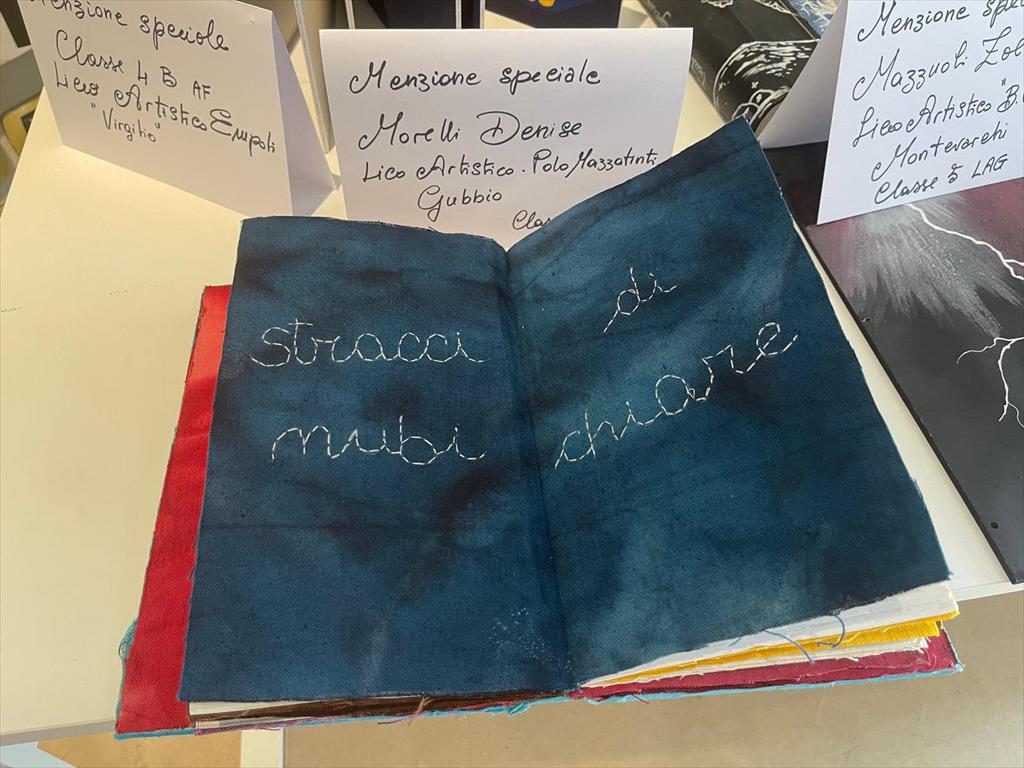 Menzione speciale
Classe 4 B AF
Liceo Artistico Empoli
"Virgilio"
Menzione speciale
Morelli Denise
Lico Artistico. Polo Mazzatinti
Gubbio
Menzione
Mazzuoli
Liceo Artistico
Montevarchi
Classe 5 LAG
stracci di
nubi chiare